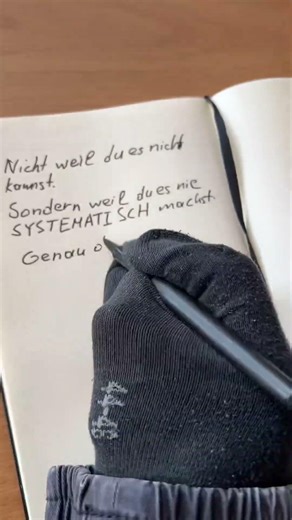 Nicht weil du es nicht
kannst.
Sondern weil du es nie
SYSTEMATISCH machst.
Genau